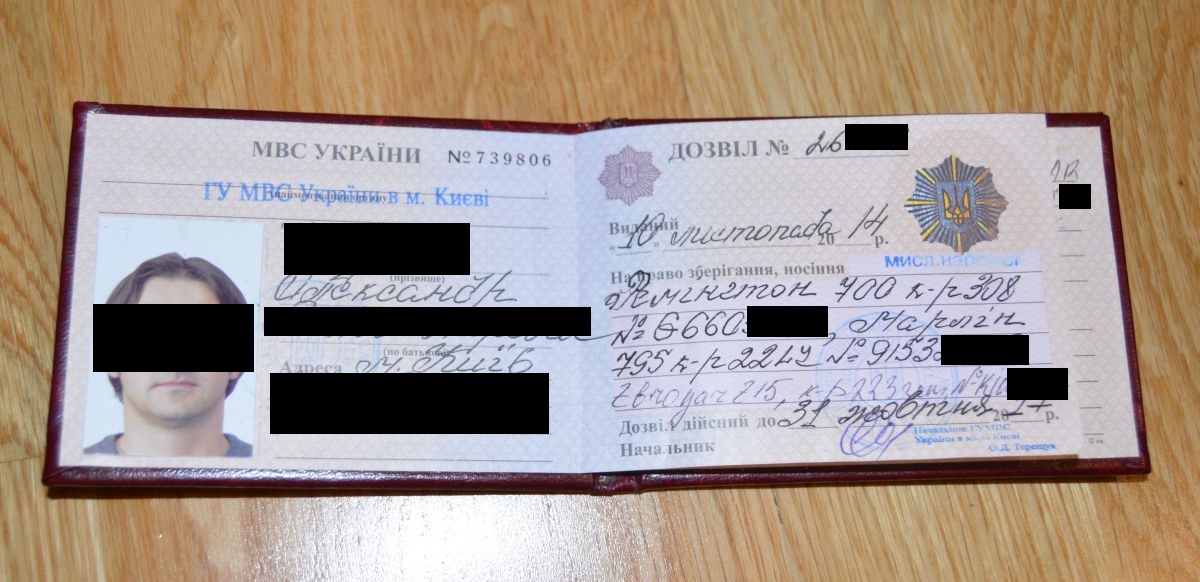 МВС УКРАЇНИ №739806
ГУ МВС України в м. Києві
(найменування органу)
(прізвище)
Олександр
(по батькові)
Адреса м. Київ
ДОЗВІЛ № 26
Виданий
"10" листопада 2014 р.
На право зберігання, носіння
мисл. нарізної
Ремінгтон 700 к-р 308
№ G6603 , Марлін
795 к-р 22LR № 9153
к-р 223
Дозвіл дійсний до 31 жовтня 2017 р.
Начальник
Начальник ГУМВС
України в місті Києві
О.Д. Терещук